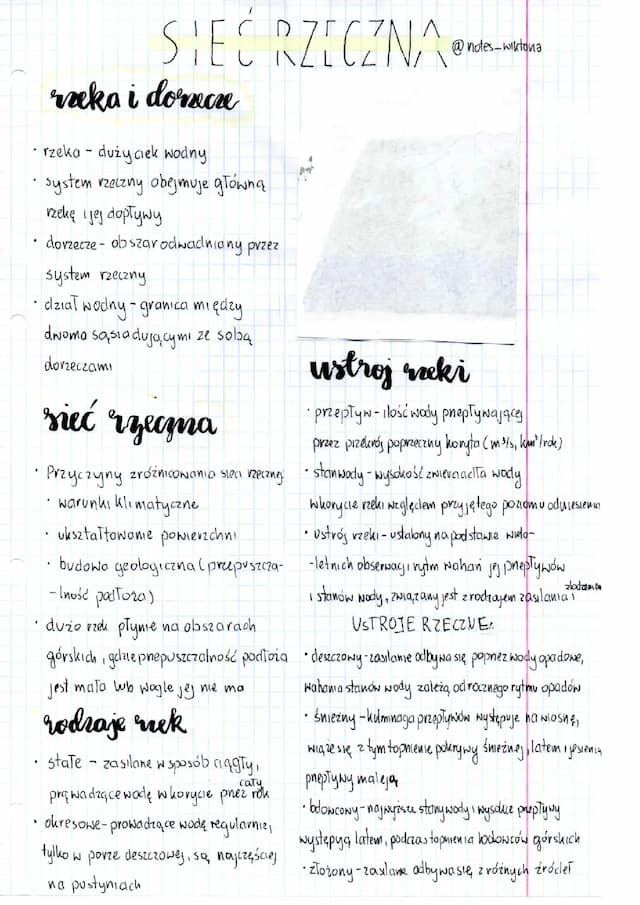 SIEĆ RZECZNA @notes_wiktoria
rzeka i dorzecze
· rzeka – duży ciek wodny
· system rzeczny obejmuje główną
rzekę i jej dopływy
· dorzecze – obszar odwadniany przez
system rzeczny
· dział wodny – granica między
dwoma sąsiadującymi ze sobą
dorzeczami
sieć rzeczna
· Przyczyny zróżnicowania sieci rzecznej
· warunki klimatyczne
· ukształtowanie powierzchni
· budowa geologiczna (przepuszcza-
-lność podłoża)
· dużo rzek płynie na obszarach
górskich, gdzie przepuszczalność podłoża
jest mała lub wogle jej nie ma
rodzaje rzek
· stałe – zasilane w sposób ciągły,
prowadzące wodę w korycie przez cały rok
· okresowe – prowadzące wodę regularnie,
tylko w porze deszczowej, są najczęściej
na pustyniach
ustrój rzeki
· przepływ – ilość wody przepływającej
przez przekrój poprzeczny koryta (m³/s, km³/rok)
· stan wody – wysokość zwierciadła wody
w korycie rzeki względem przyjętego poziomu odniesienia
· ustrój rzeki – ustalony na podstawie wielo-
-letnich obserwacji rytm wahań jej przepływów
i stanów wody, związany jest z rodzajem zasilania i zlodzenia
USTROJE RZECZNE:
· deszczowy – zasilanie odbywa się poprzez wody opadowe,
wahania stanów wody zależą od rocznego rytmu opadów
· śnieżny – kulminacja przepływów występuje na wiosnę,
wiąże się z tym topnienie pokrywy śnieżnej, latem i jesienią
przepływy maleją
· lodowcowy – najwyższe stany wody i wysokie przepływy
występują latem, podczas topnienia lodowców górskich
· złożony – zasilanie odbywa się z różnych źródeł